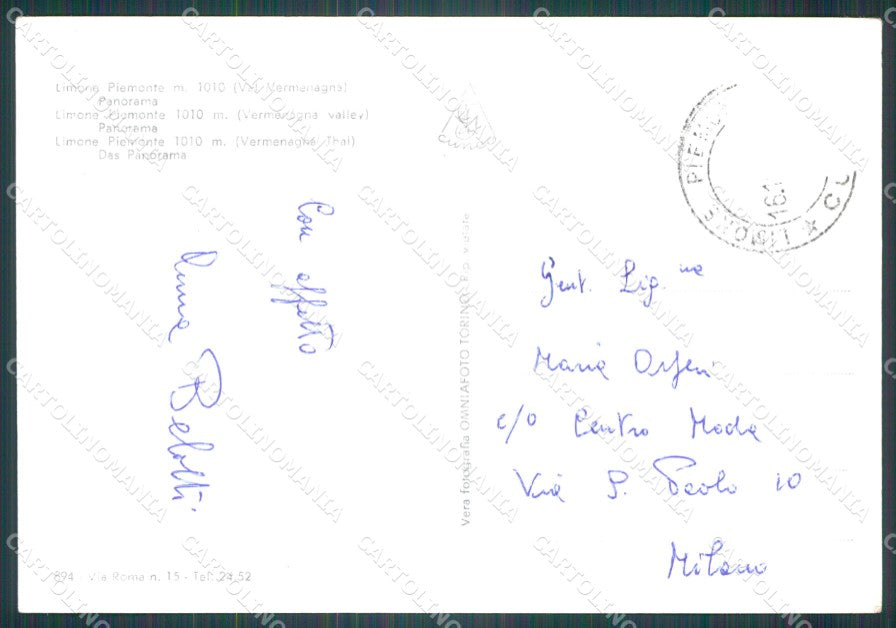 Limone Piemonte m. 1010 (Val Vermenagna)
Panorama
Limone Piemonte 1010 m. (Vermenagna valley)
Panorama
Limone Piemonte 1010 m. (Vermenagna Thal)
Das Panorama
Con affetto
Anna Belotti
894 - Via Roma n. 15 - Tel. 24.52
Vera fotografia OMNIAFOTO TORINO - Rip. vietata
LIMONE PIEMO
CU
16.1
Gent. Sig.na
Maria
c/o Centro Moda
Via S. Paolo 10
Milano
CARTOLINOMANIA